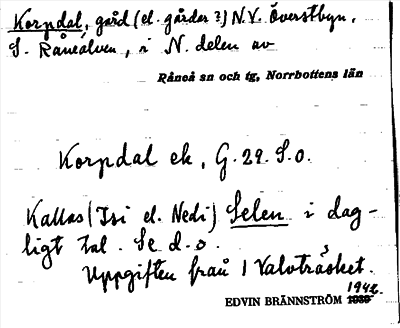 Korpdal, gård (el. gårdar?) N.V. Överstbyn,
S. Råneälven, i N. delen av
Råneå sn och tg, Norrbottens län
Korpdal ek, G. 29. S.o.
Kallas (Isi el. Nedi) Selen i dag-
ligt tal. Se d.o.
Uppgiften från 1 Valvträsket.
1942.
EDVIN BRÄNNSTRÖM 1939